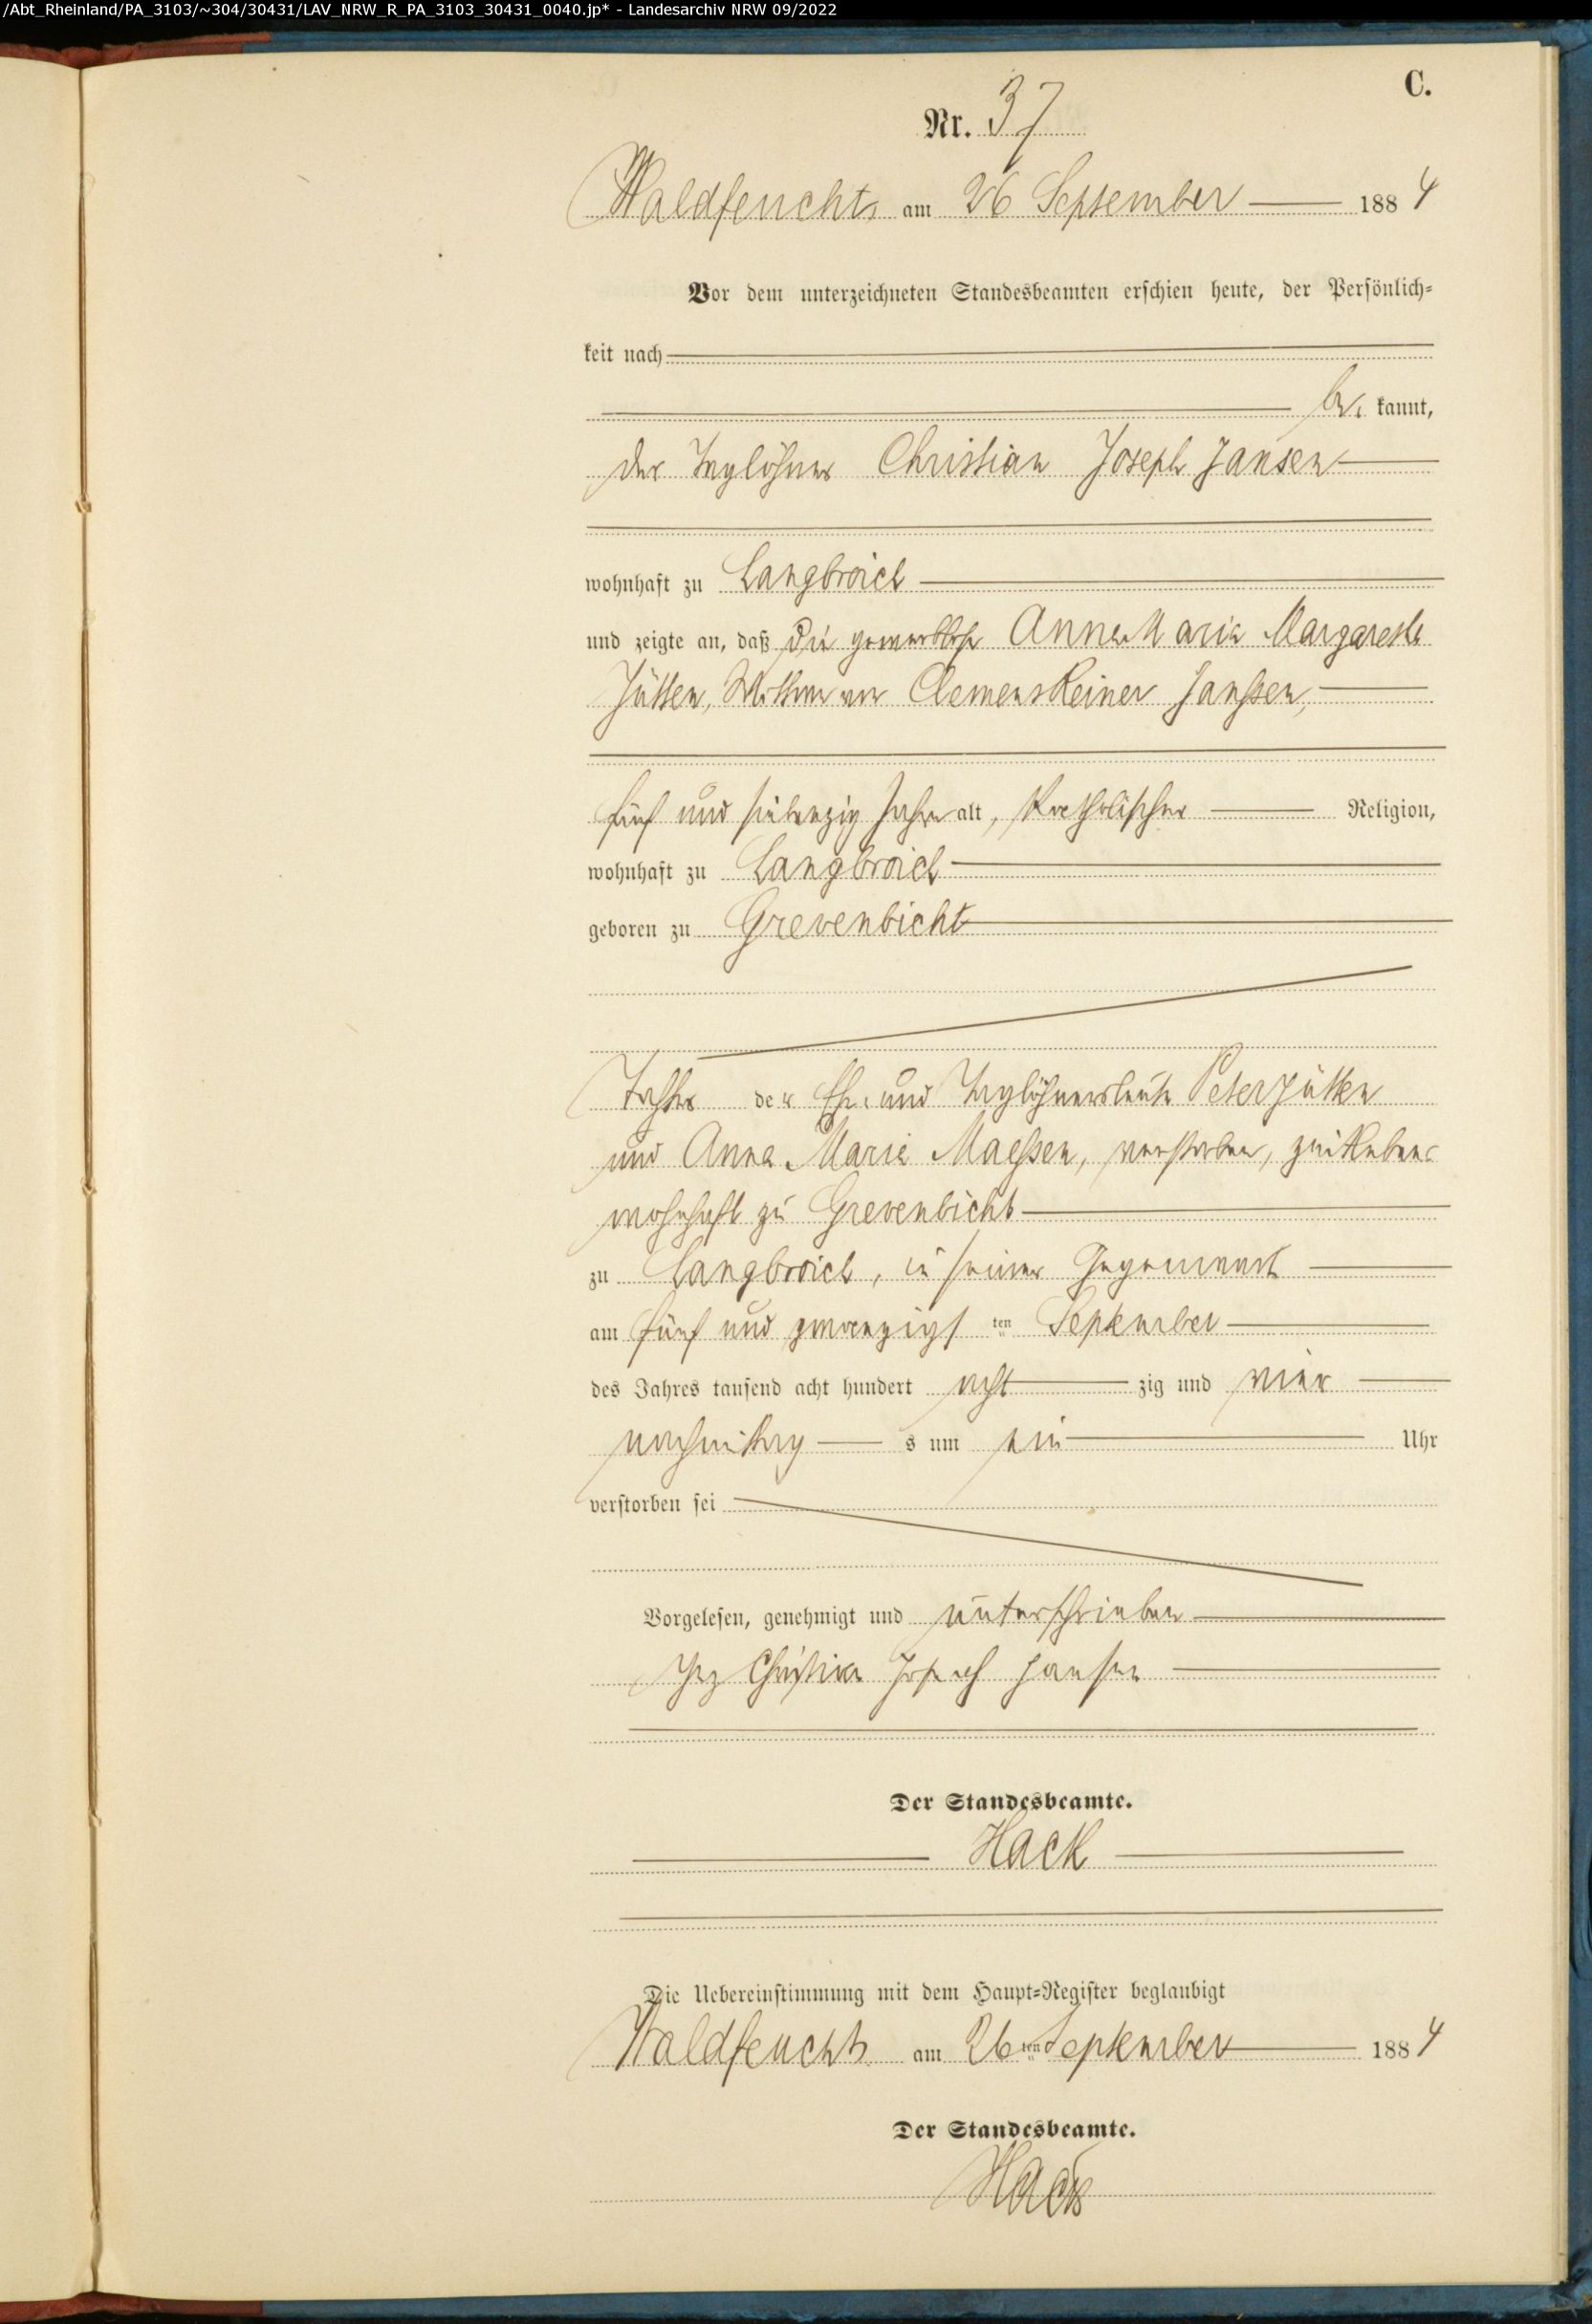 /Abt_Rheinland/PA_3103/~304/30431/LAV_NRW_R_PA_3103_30431_0040.jp* - Landesarchiv NRW 09/2022
C.
Nr. 37
Waldfeucht, am 26 September 1884
Vor dem unterzeichneten Standesbeamten erschien heute, der Persönlich-
keit nach
be kannt,
der Taglöhner Christian Joseph Jansen
wohnhaft zu Langbroich
und zeigte an, daß die gewerblose Anna Maria Margaretha
Jütten, Wittwe von Clemens Reiner Janßen,
fünf und siebenzig Jahre alt, katholischer Religion,
wohnhaft zu Langbroich
geboren zu Grevenbicht
Tochter der Ehe- und Taglöhnersleute Peter Jütten
und Anna Maria Maeßen, verstorben, zuitleben
wohnhaft zu Grevenbicht
zu Langbroich, in seiner Gegenwart
am fünf und zwanzigsten September
des Jahres tausend acht hundert achtzig und vier
nachmittags um ein Uhr
verstorben sei
Vorgelesen, genehmigt und unterschrieben
gez Christian Joseph Jansen
Der Standesbeamte.
Hack
Die Uebereinstimmung mit dem Haupt-Register beglaubigt
Waldfeucht am 26ten September 1884
Der Standesbeamte.
Hack